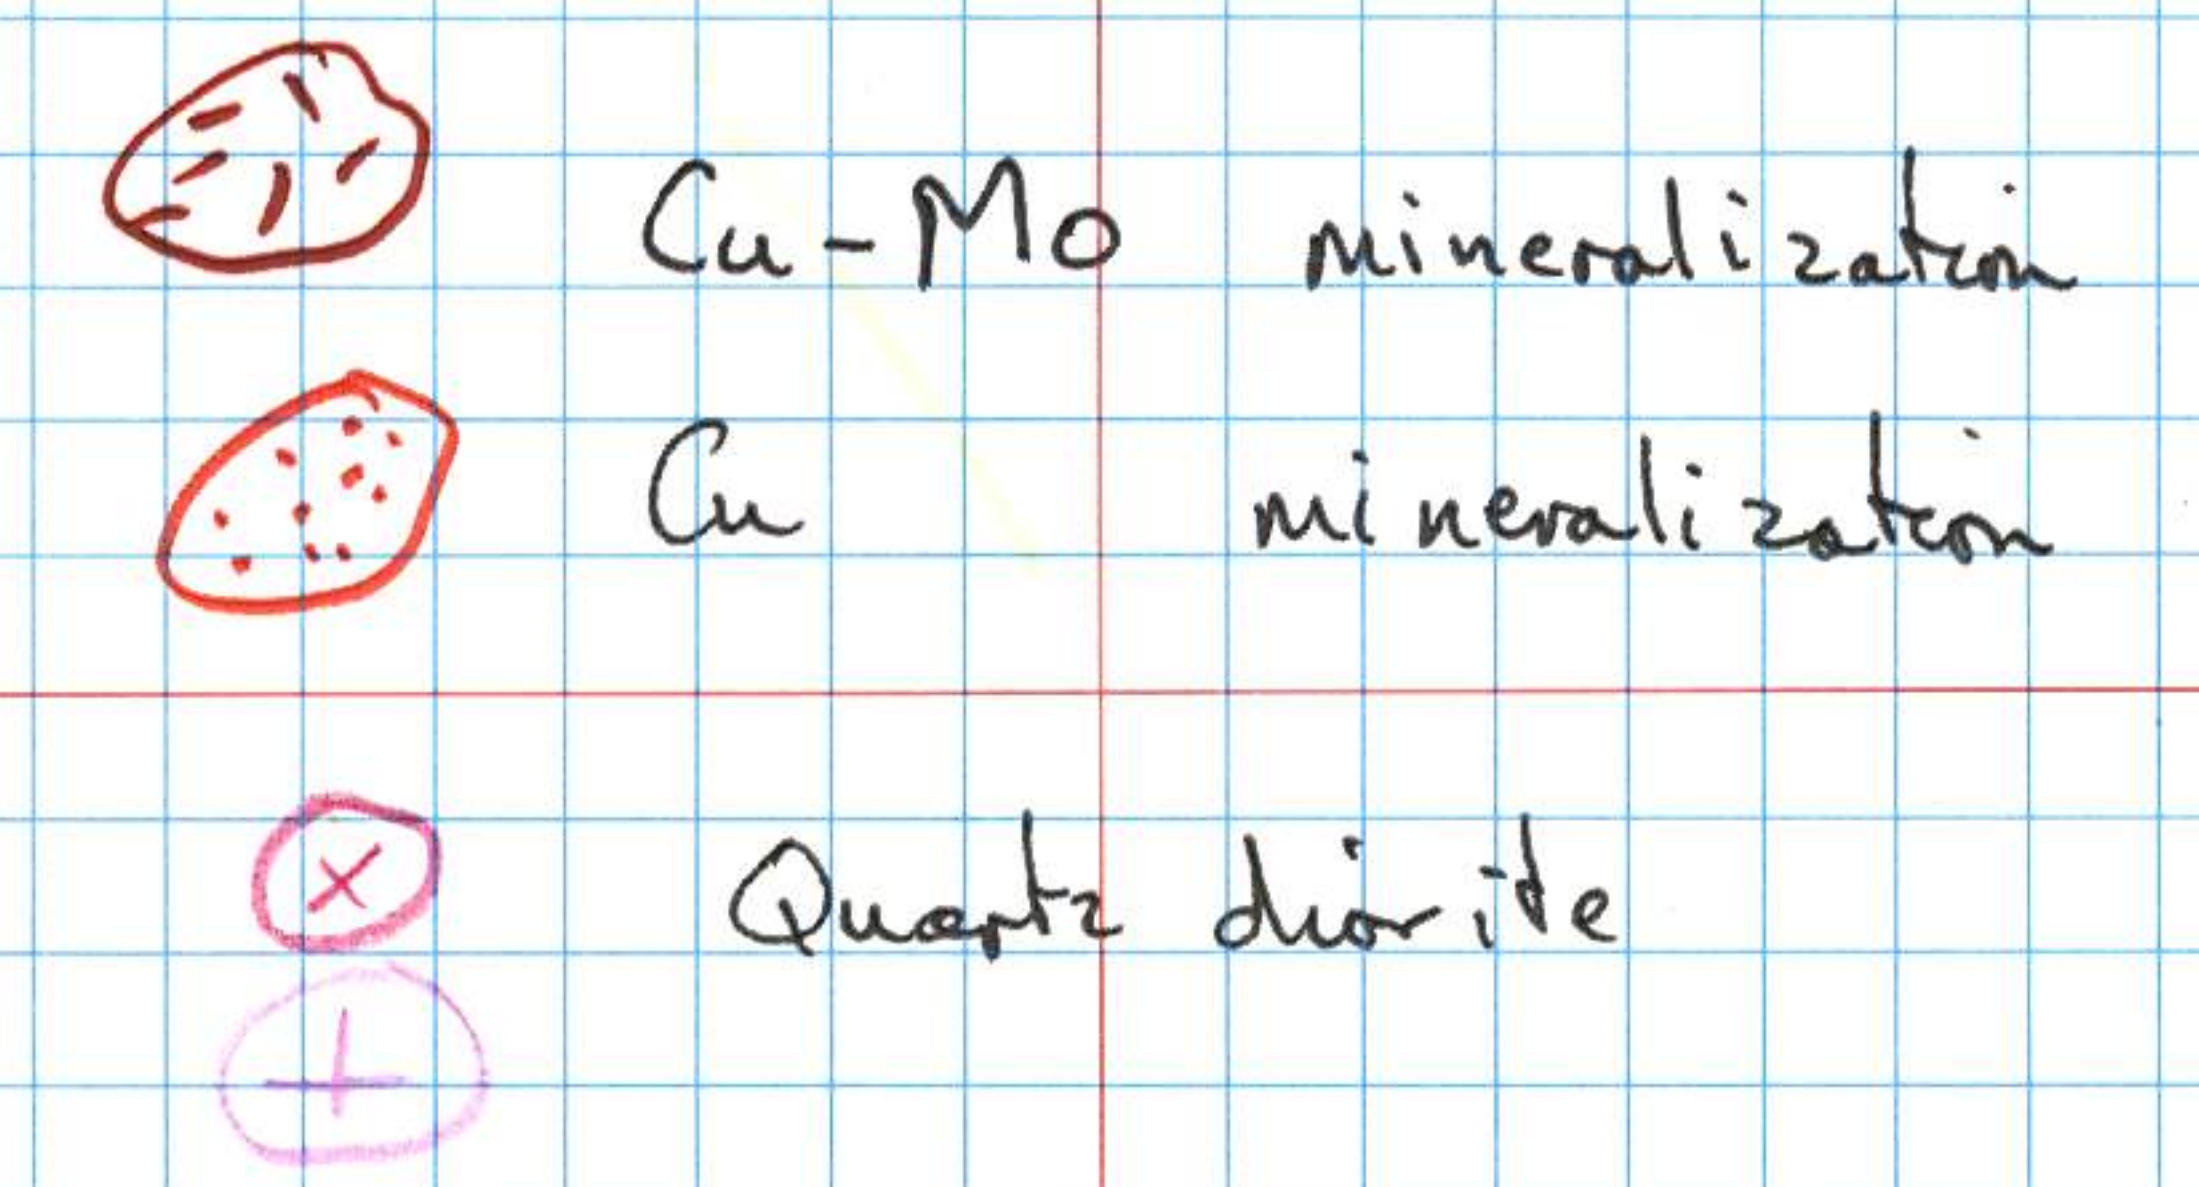 Cu-Mo mineralization
Cu mineralization
Quartz diorite